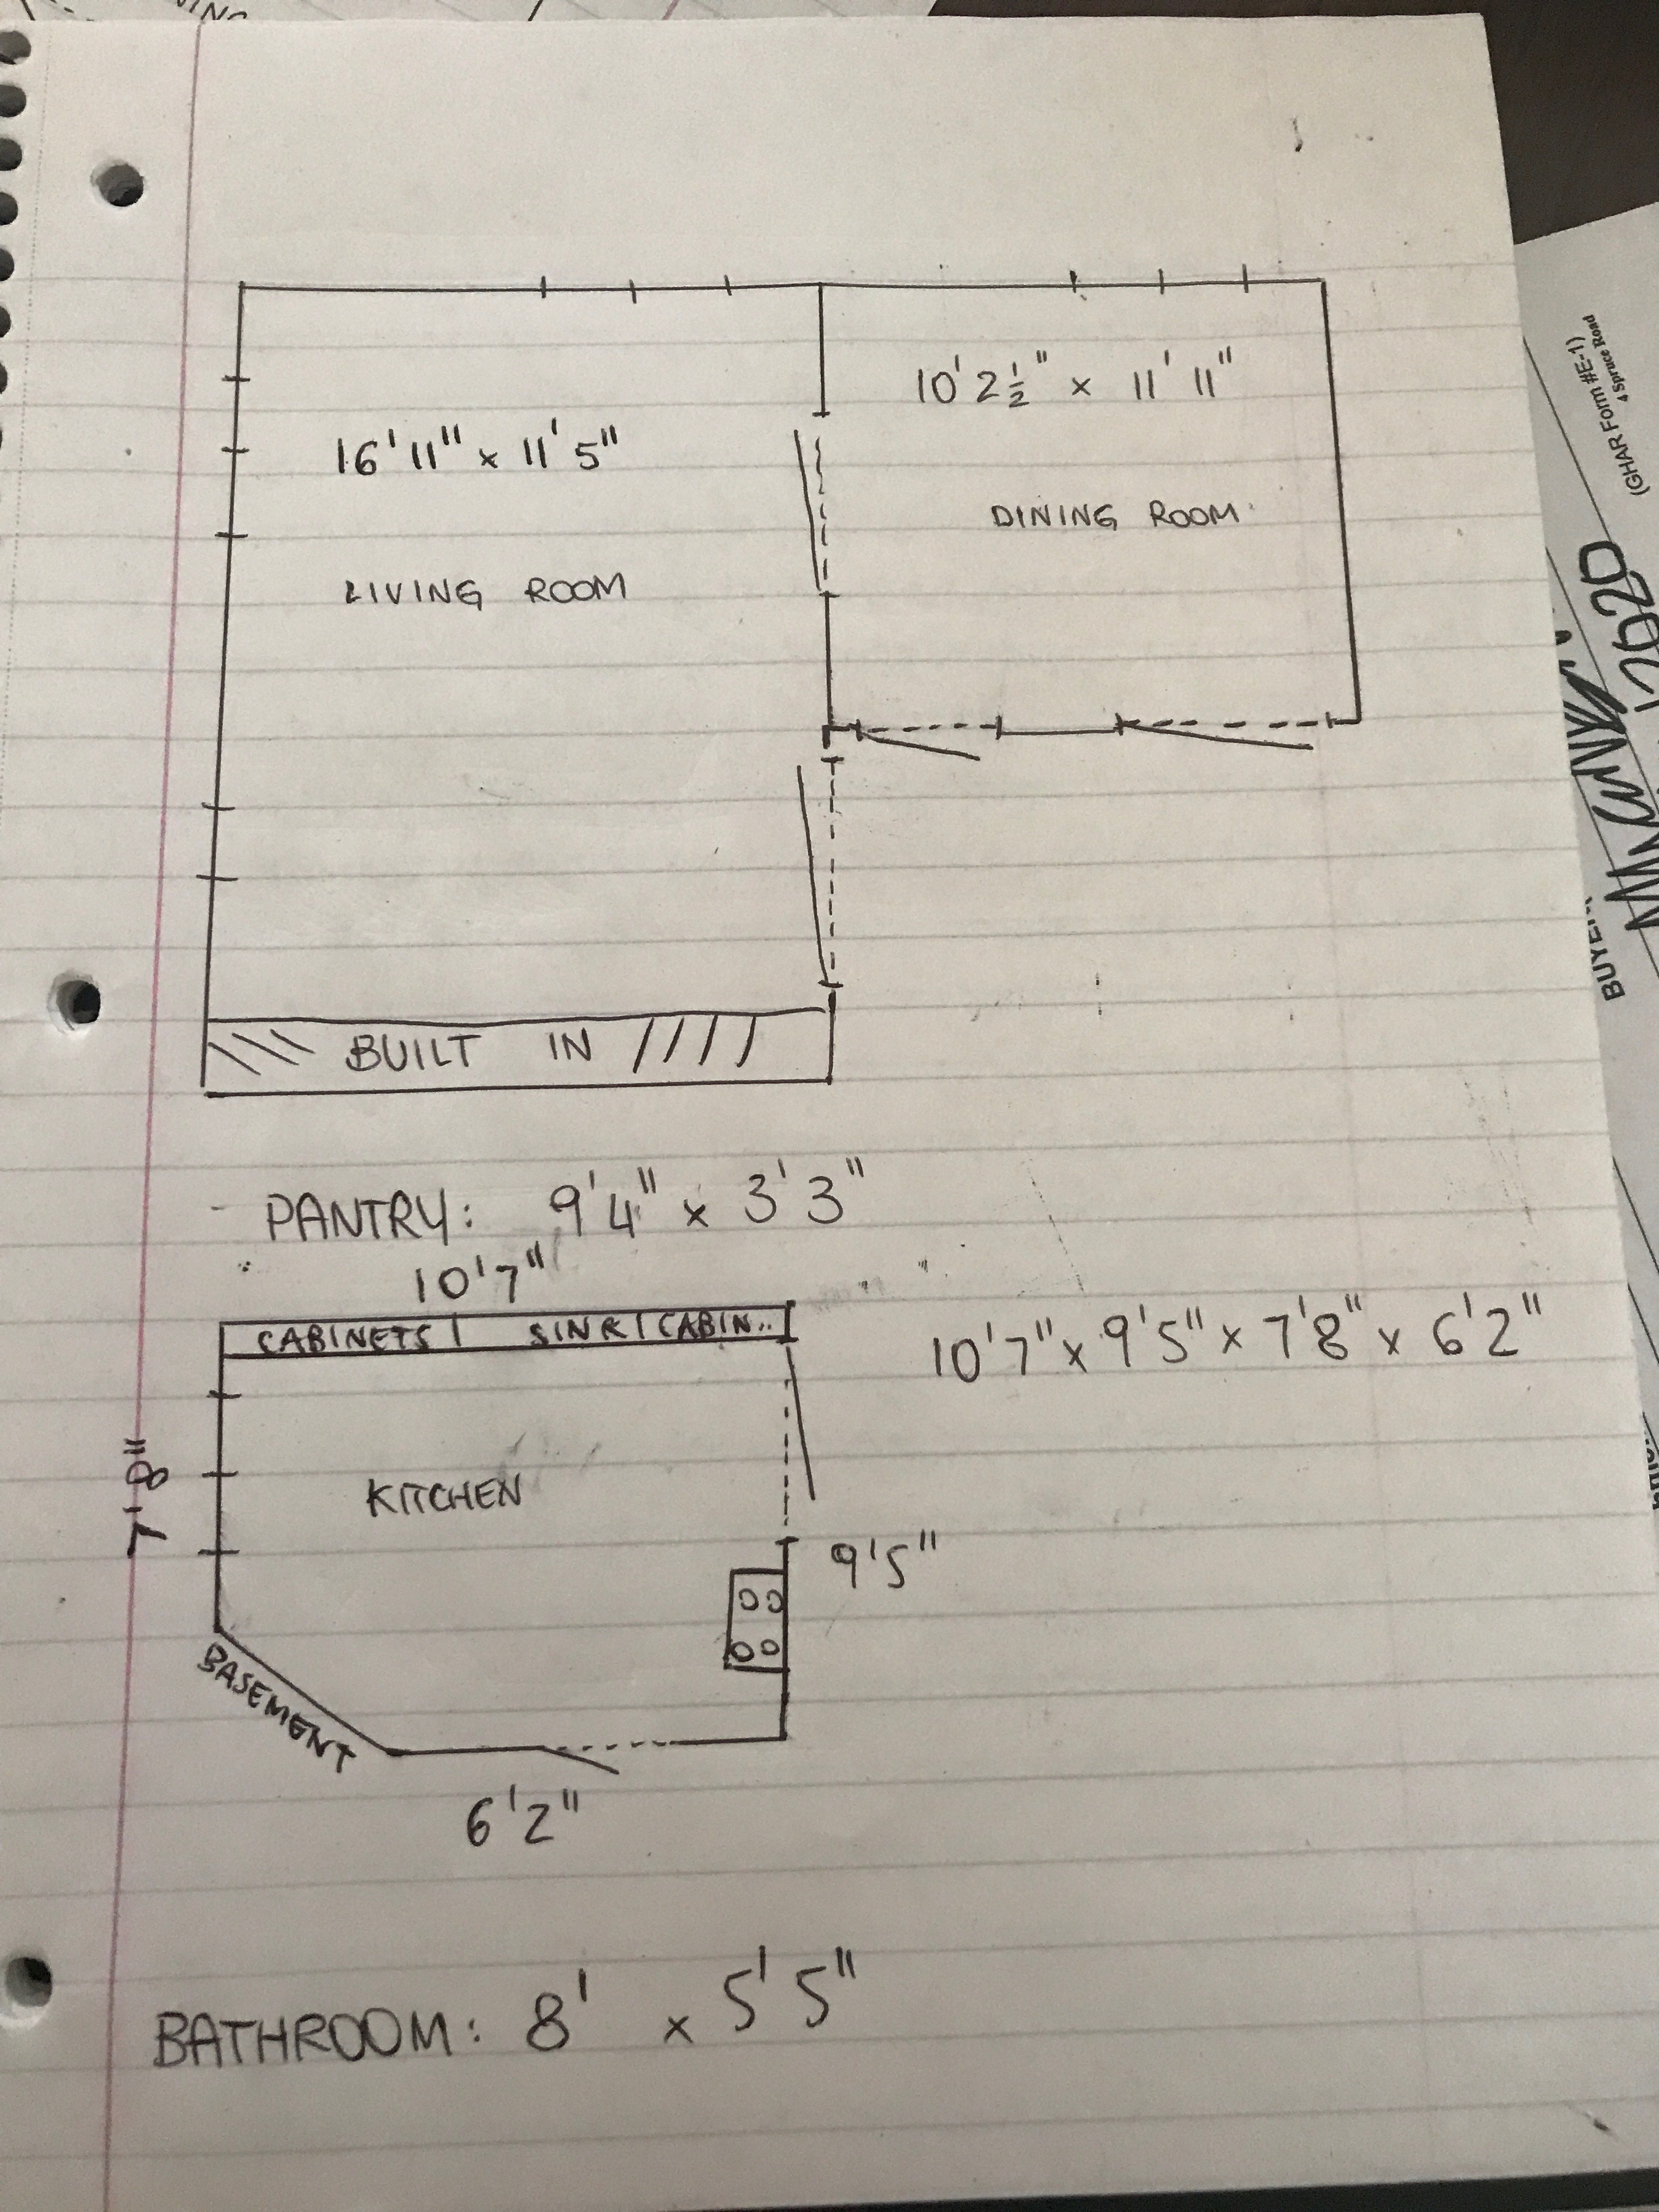 10'2½" x 11'11"
16'11" x 11'5"
DINING ROOM
LIVING ROOM
BUILT IN
PANTRY: 9'4" x 3'3"
10'7"
CABINETS | SINK | CABIN..
10'7" x 9'5" x 7'8" x 6'2"
7'8"
KITCHEN
9'5"
BASEMENT
6'2"
BATHROOM: 8' x 5'5"
(GHAR Form #E-1)
4 Spruce Road
2920